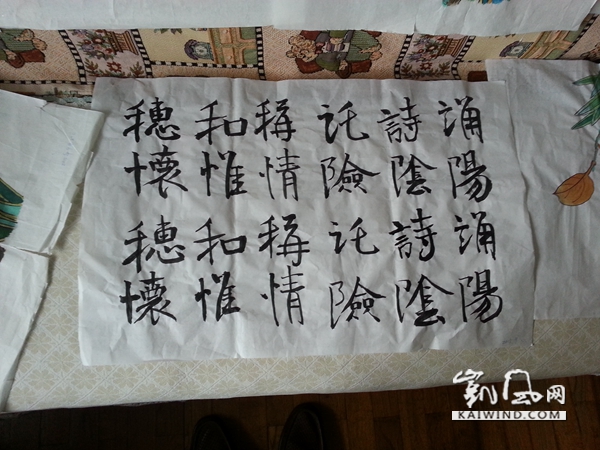 穗和稱託詩誦
懷惟情險陰陽
穗和稱託詩誦
懷惟情險陰陽
凯风网
KAIWIND.COM